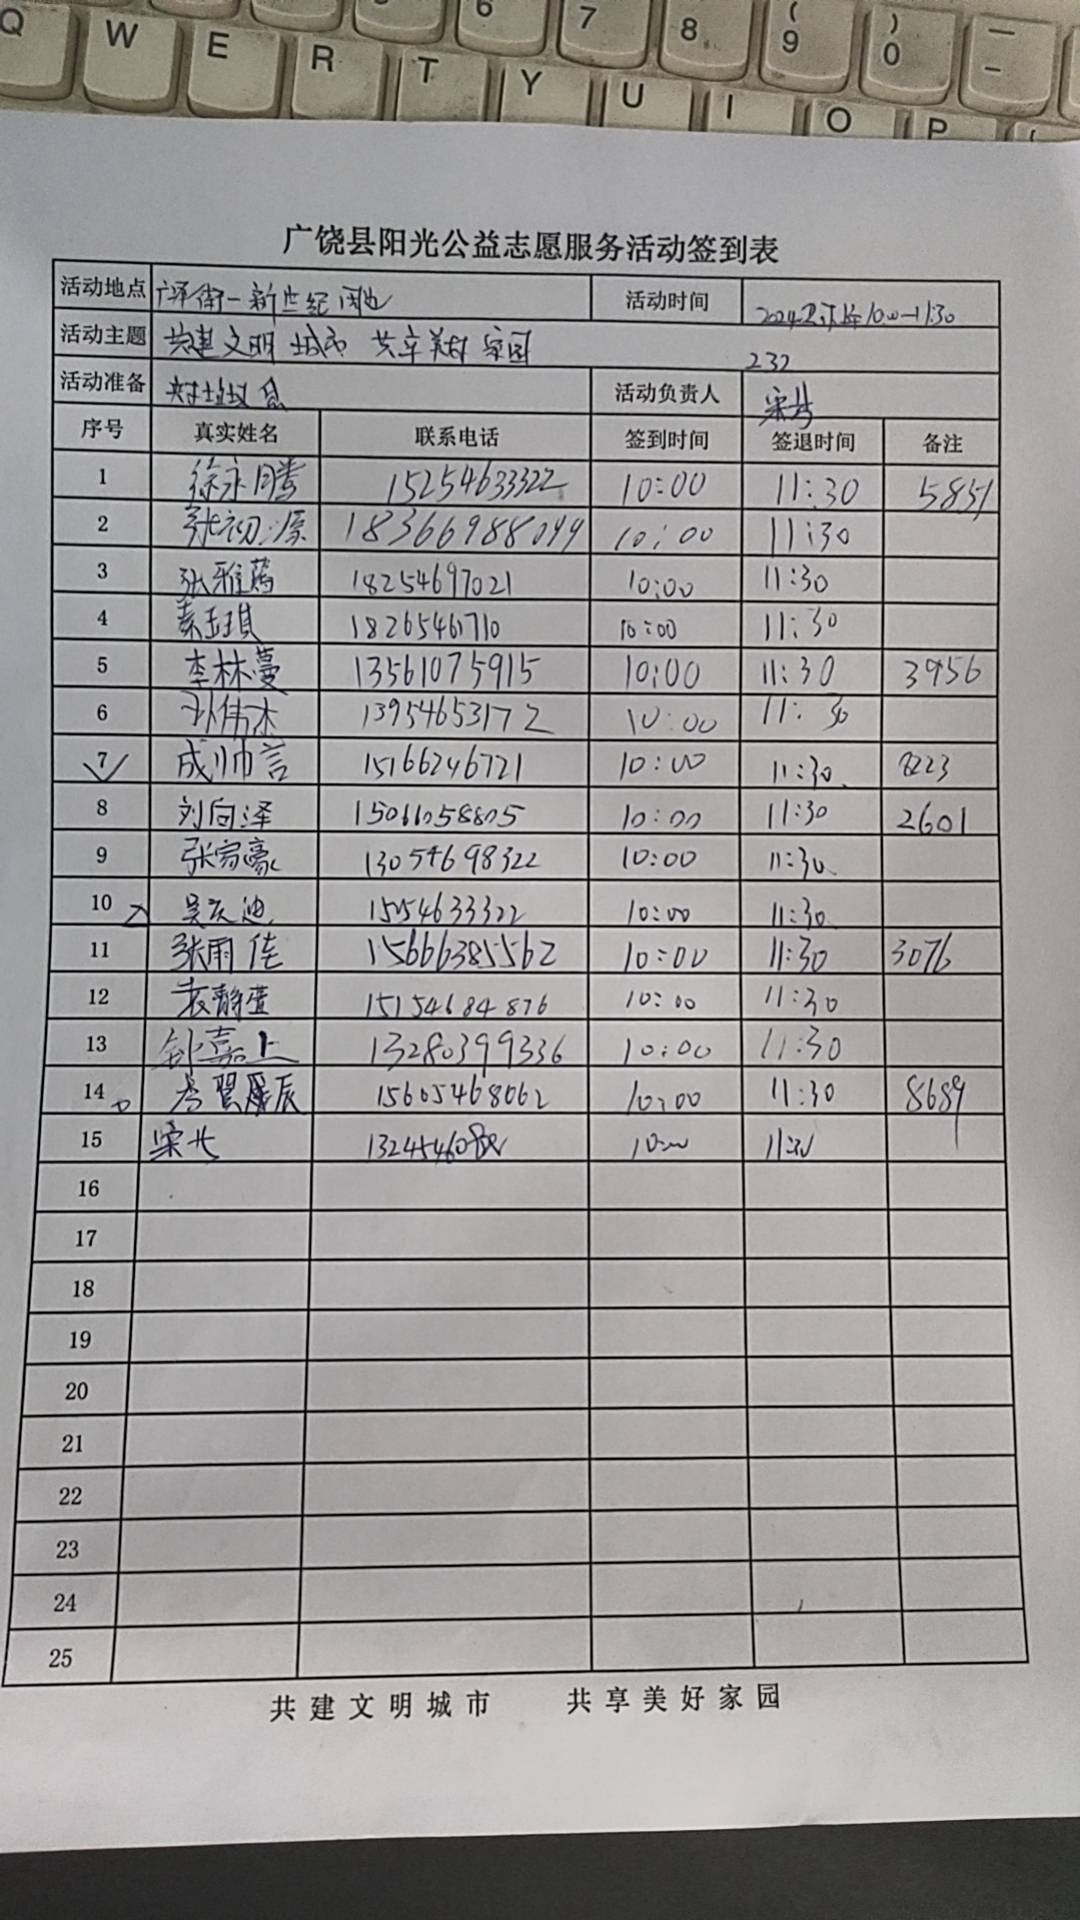 6 7 8 ( 9 ) 0 — -
Q W E R T Y U I O P
广饶县阳光公益志愿服务活动签到表
活动地点 活动时间
活动主题 共建文明 城市 共享美好 家园 232
活动准备 活动负责人
序号 真实姓名 联系电话 签到时间 签退时间 备注
1 徐永腾 15254633322 10:00 11:30 5851
2 张初源 18366988099 10:00 11:30
3 张雅茜 18254697021 10:00 11:30
4 袁玉琪 18265461710 10:00 11:30
5 李林蔓 13561075915 10:00 11:30 3956
6 孙伟杰 13954653172 10:00 11:30
7 成帅言 15166246721 10:00 11:30 8223
8 刘向泽 15061058805 10:00 11:30 2601
9 张家豪 13054698322 10:00 11:30
10 10:00 11:30
11 张雨佳 15666385562 10:00 11:30 3076
12 袁静萱 15154684876 10:00 11:30
13 13280399336 10:00 11:30
14 15605468062 10:00 11:30 8689
15 10:00 11:30
16
17
18
19
20
21
22
23
24
25
共建文明城市 共享美好家园